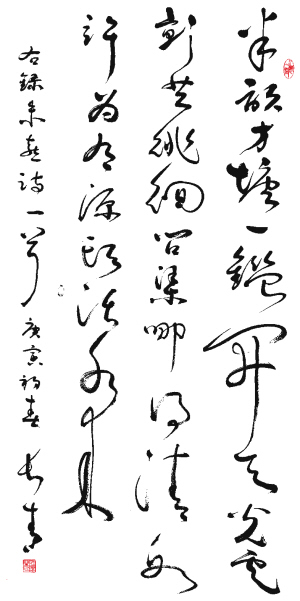 半畝方塘一鑑開天光雲
影共徘徊問渠哪得清如
許為有源頭活水來
右錄朱熹詩一首庚寅初春長青